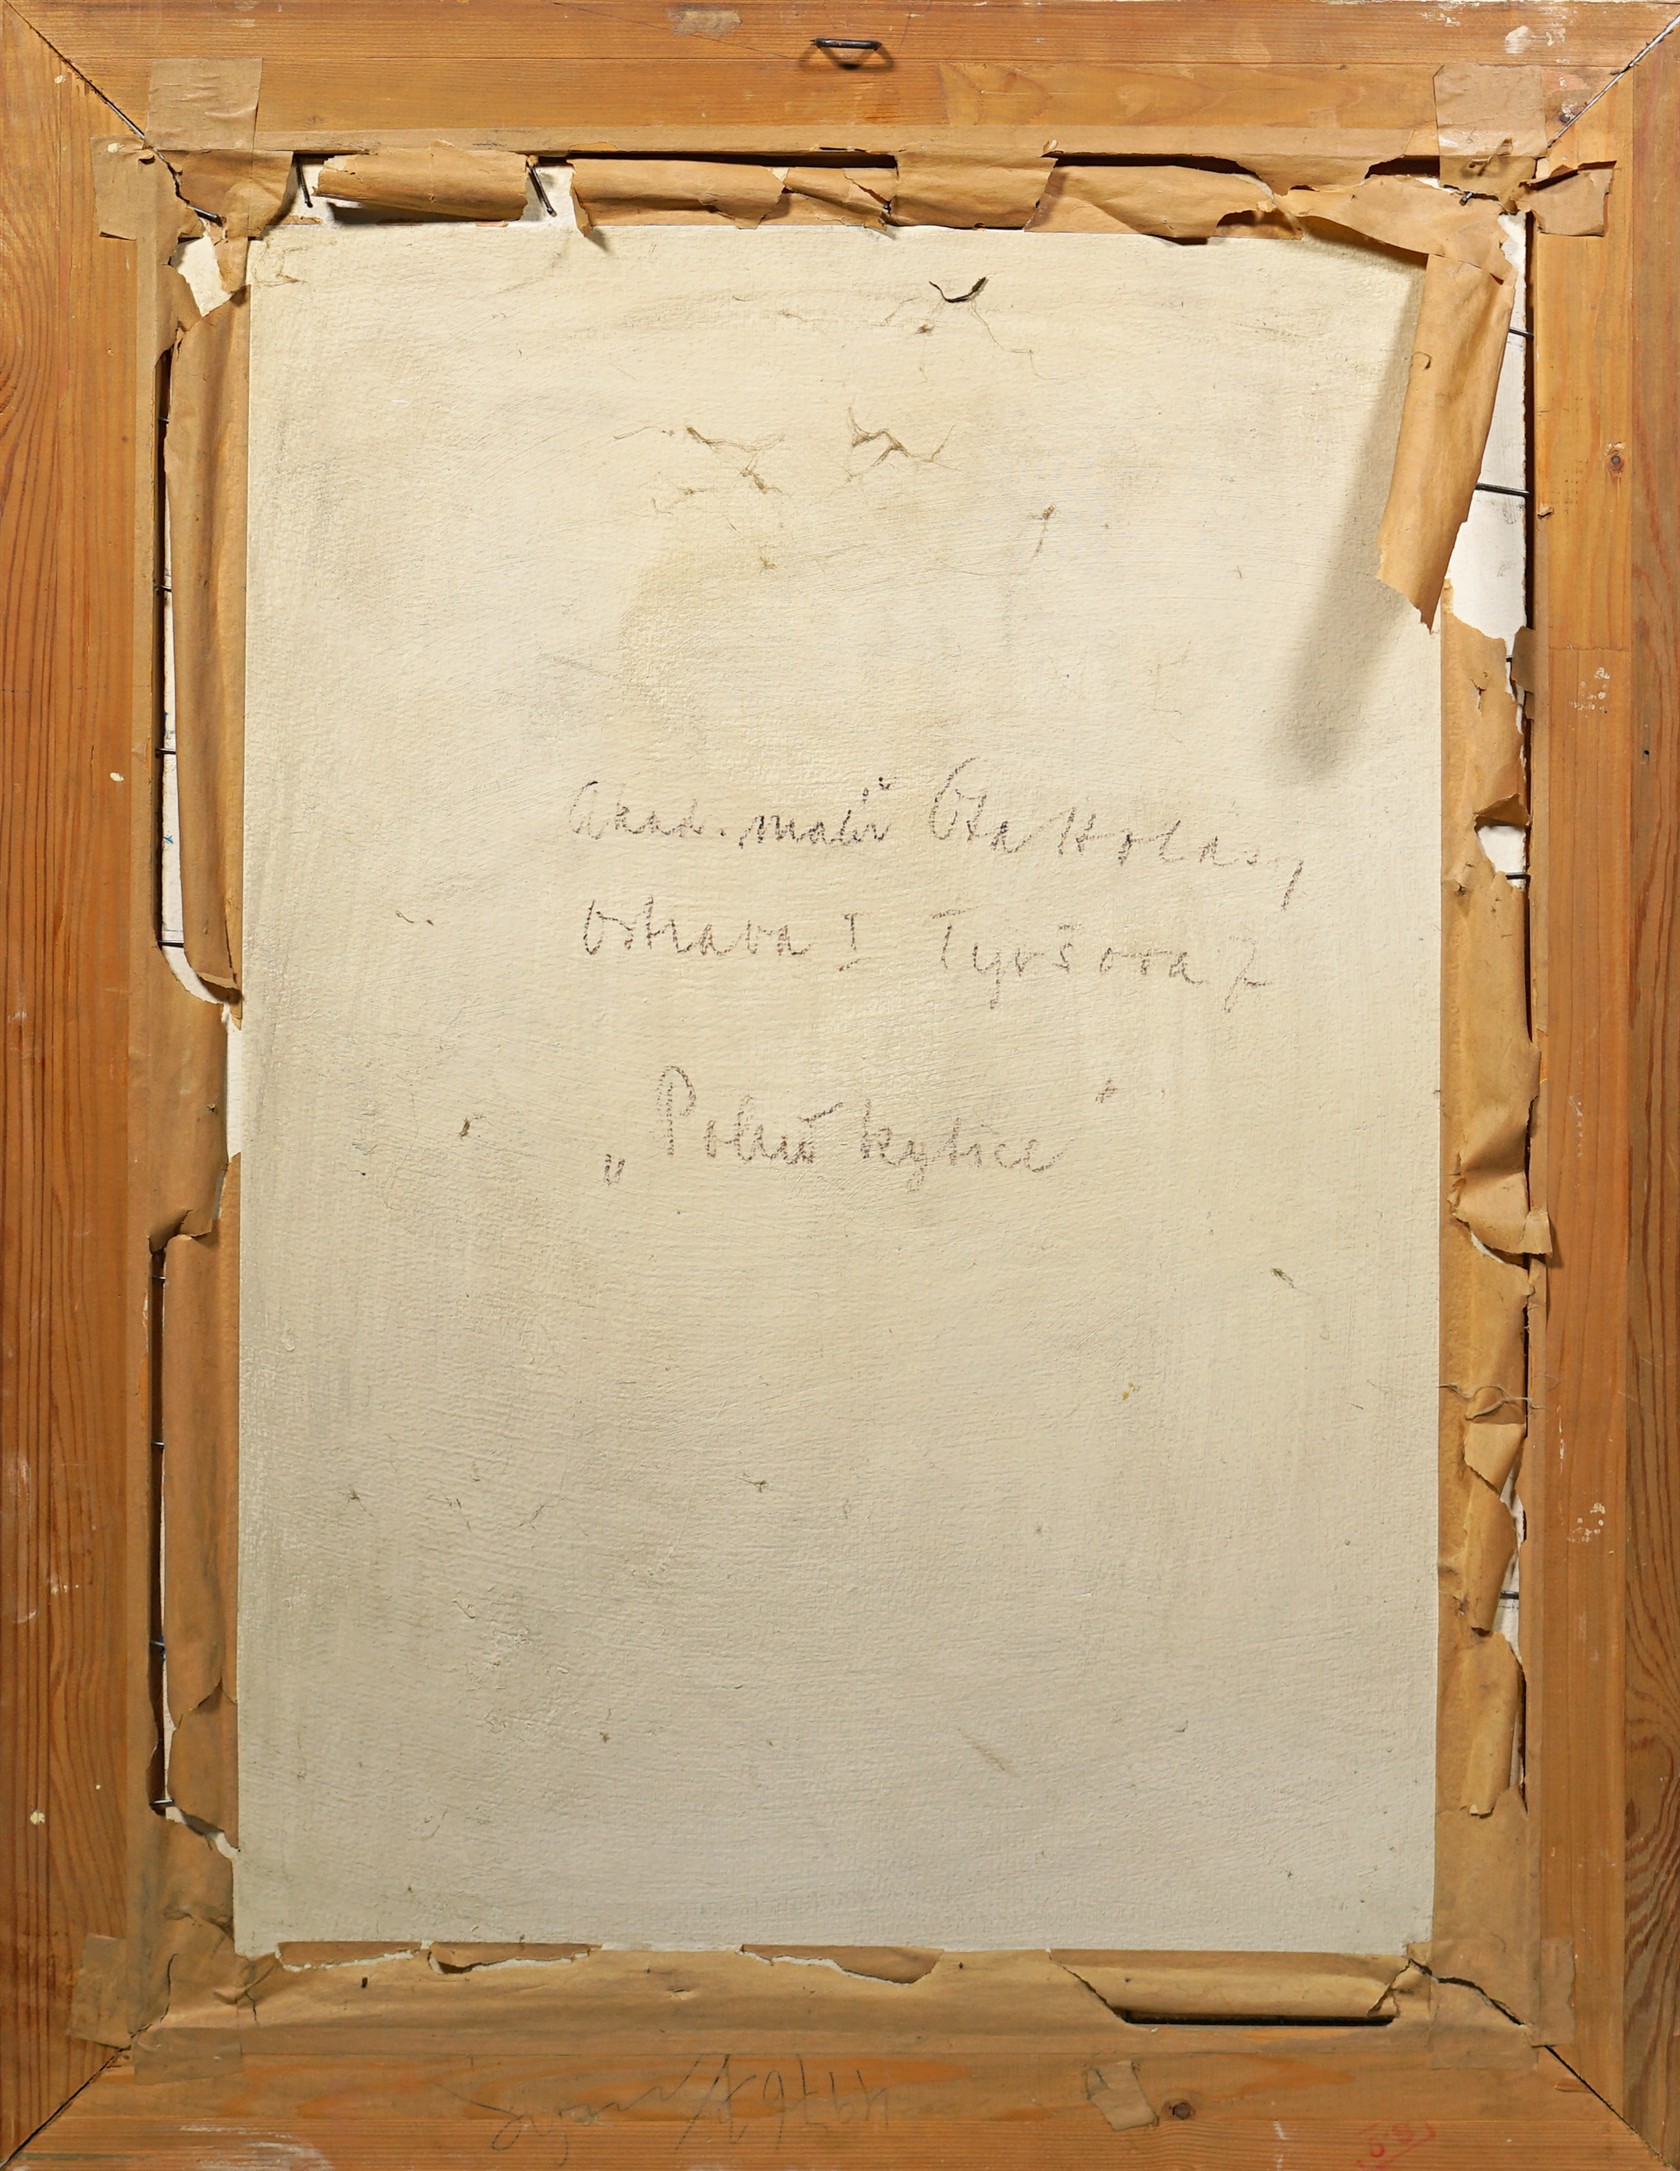 Akad. malíř Ota Holas,
Ostrava I Tyršova 7
„Polní kytice"
1976